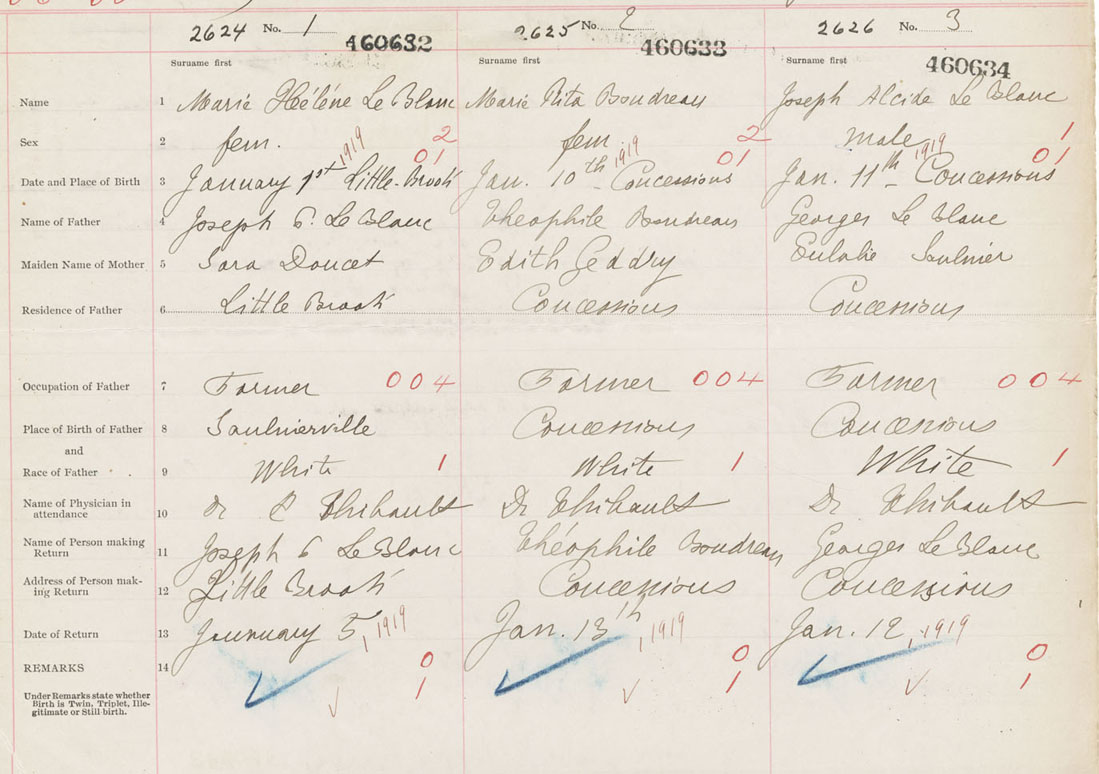 2624 No. 1 2625 No. 2 2626 No. 3
460632 460633 460634
Surname first Surname first Surname first
Name 1 Marie Héléne Le Blanc Marie Rita Boudreau Joseph Alcide Le Blanc
Sex 2 fem. 2 fem 2 male 1
1919 01 1919 01 1919 01
Date and Place of Birth 3 January 1st Little-Brook Jan. 10th - Concessions Jan. 11th - Concessions
Name of Father 4 Joseph C. Le Blanc Théophile Boudreau Georges Le Blanc
Maiden Name of Mother 5 Sara Doucet Edith Geddry Eulalie Saulnier
Residence of Father 6 Little Brook Concessions Concessions
Occupation of Father 7 Farmer 004 Farmer 004 Farmer 004
Place of Birth of Father 8 Saulnierville Concessions Concessions
and
Race of Father 9 White 1 White 1 White 1
Name of Physician in
attendance 10 Dr Thibault Dr Thibault Dr Thibault
Name of Person making
Return 11 Joseph C Le Blanc Théophile Boudreau Georges Le Blanc
Address of Person mak-
ing Return 12 Little Brook Concessions Concessions
Date of Return 13 January 5, 1919 Jan. 13th, 1919 Jan. 12, 1919
REMARKS 14 0 0 0
1 1 1
Under Remarks state whether
Birth is Twin, Triplet, Ille-
gitimate or Still-birth.